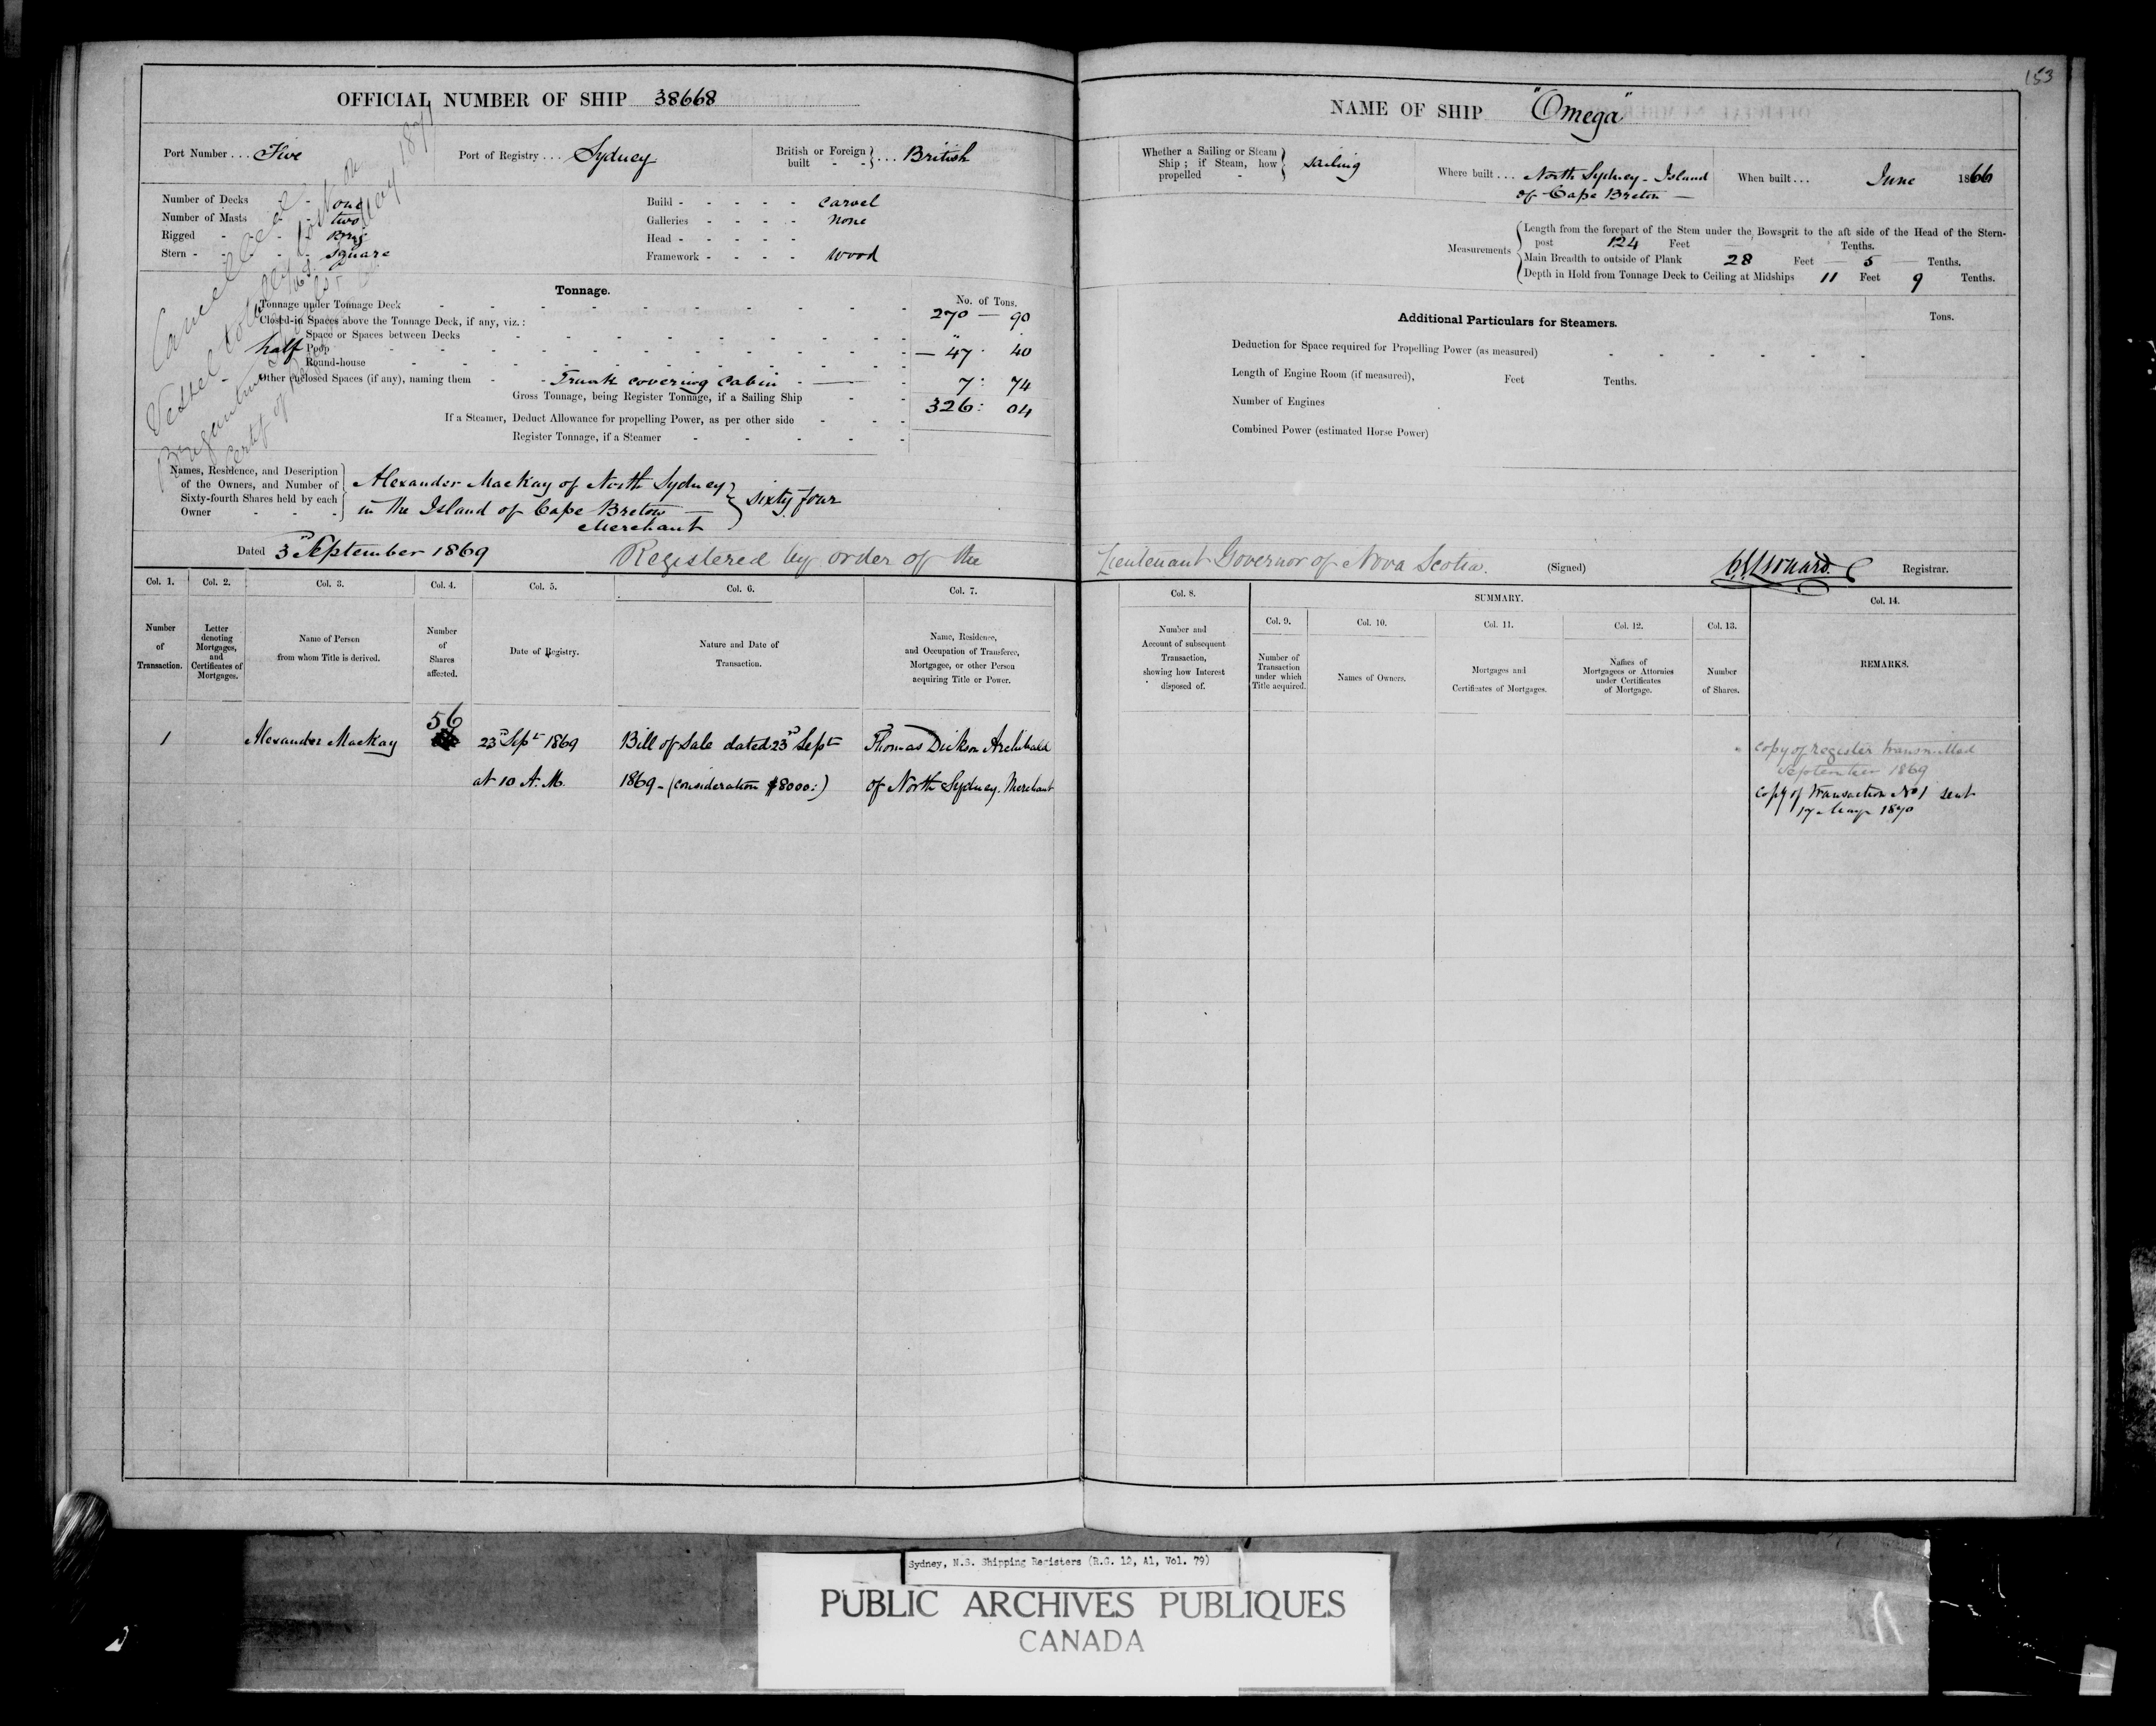 153
OFFICIAL NUMBER OF SHIP 38668
Port Number ... Five
Port of Registry ... Sydney
British or Foreign built - - } ... British
Number of Decks - - one
Number of Masts - - two
Rigged - - - Brig
Stern - - - square
Build - - - - - Carvel
Galleries - - - - None
Head - - - - -
Framework - - - - Wood
Cancelled
Vessel totally lost on
May 1871
Brigantine
Certif of
Tonnage.
No. of Tons.
Tonnage under Tonnage Deck 270 — 90
Closed-in Spaces above the Tonnage Deck, if any, viz.:
Space or Spaces between Decks "
half Poop — 47 . 40
Round-house
Other enclosed Spaces (if any), naming them - - Trunk covering Cabin - 7 : 74
Gross Tonnage, being Register Tonnage, if a Sailing Ship - - 326 : 04
If a Steamer, Deduct Allowance for propelling Power, as per other side
Register Tonnage, if a Steamer
Names, Residence, and Description
of the Owners, and Number of
Sixty-fourth Shares held by each
Owner
Alexander MacKay of North Sydney
in the Island of Cape Breton —
Merchant
} sixty four
Dated 3rd September 1869 Registered by order of the
Col. 1. Col. 2. Col. 3. Col. 4. Col. 5. Col. 6. Col. 7.
Number of Transaction.
Letter denoting Mortgages, and Certificates of Mortgages.
Name of Person from whom Title is derived.
Number of Shares affected.
Date of Registry.
Nature and Date of Transaction.
Name, Residence, and Occupation of Transferee, Mortgagee, or other Person acquiring Title or Power.
56
1 Alexander MacKay 23d Sept 1869 Bill of Sale dated 23d Sept Thomas Dickson Archibald
at 10 A.M. 1869 - (consideration $8000:) of North Sydney. Merchant
NAME OF SHIP "Omega"
Whether a Sailing or Steam Ship; if Steam, how propelled - } Sailing
Where built ... North Sydney - Island
of Cape Breton —
When built ... June 1866
Measurements
Length from the forepart of the Stem under the Bowsprit to the aft side of the Head of the Stern-
post 124 Feet — Tenths.
Main Breadth to outside of Plank 28 Feet — 5 — Tenths.
Depth in Hold from Tonnage Deck to Ceiling at Midships 11 Feet 9 Tenths.
Additional Particulars for Steamers.
Tons.
Deduction for Space required for Propelling Power (as measured)
Length of Engine Room (if measured), Feet Tenths.
Number of Engines
Combined Power (estimated Horse Power)
Lieutenant Governor of Nova Scotia. (Signed) Registrar.
Col. 8. SUMMARY. Col. 14.
Col. 9. Col. 10. Col. 11. Col. 12. Col. 13.
Number and Account of subsequent Transaction, showing how Interest disposed of.
Number of Transaction under which Title acquired.
Names of Owners.
Mortgages and Certificates of Mortgages.
Names of Mortgagees or Attornies under Certificates of Mortgage.
Number of Shares.
REMARKS.
Copy of register transmitted
September 1869
Copy of transaction No 1 sent
17 May 1870
Sydney, N.S. Shipping Registers (R.G. 12, A1, Vol. 79)
PUBLIC ARCHIVES PUBLIQUES
CANADA